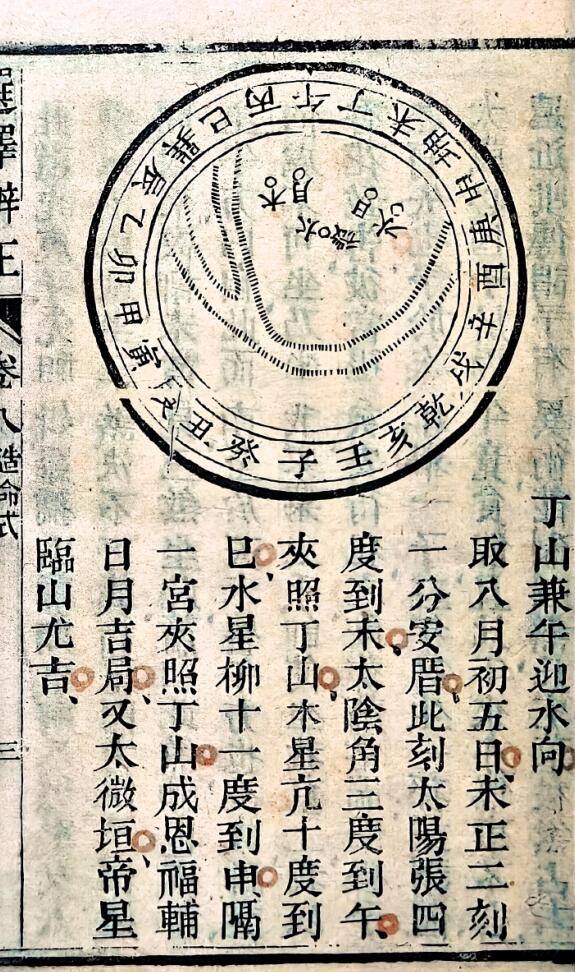 丙午丁未坤申庚酉辛戌乾亥壬子癸丑艮寅甲卯乙辰巽巳
木
月
太微
日
水
丁山兼午迎水向
取八月初五日未正二刻
一分安厝此刻太陽張四
度到未太陰角三度到午
夾照丁山木星亢十度到
巳水星柳十一度到申隔
一宮夾照丁山成恩福輔
日月吉局又太微垣帝星
臨山尤吉
選擇辨正
卷八
造命式
三